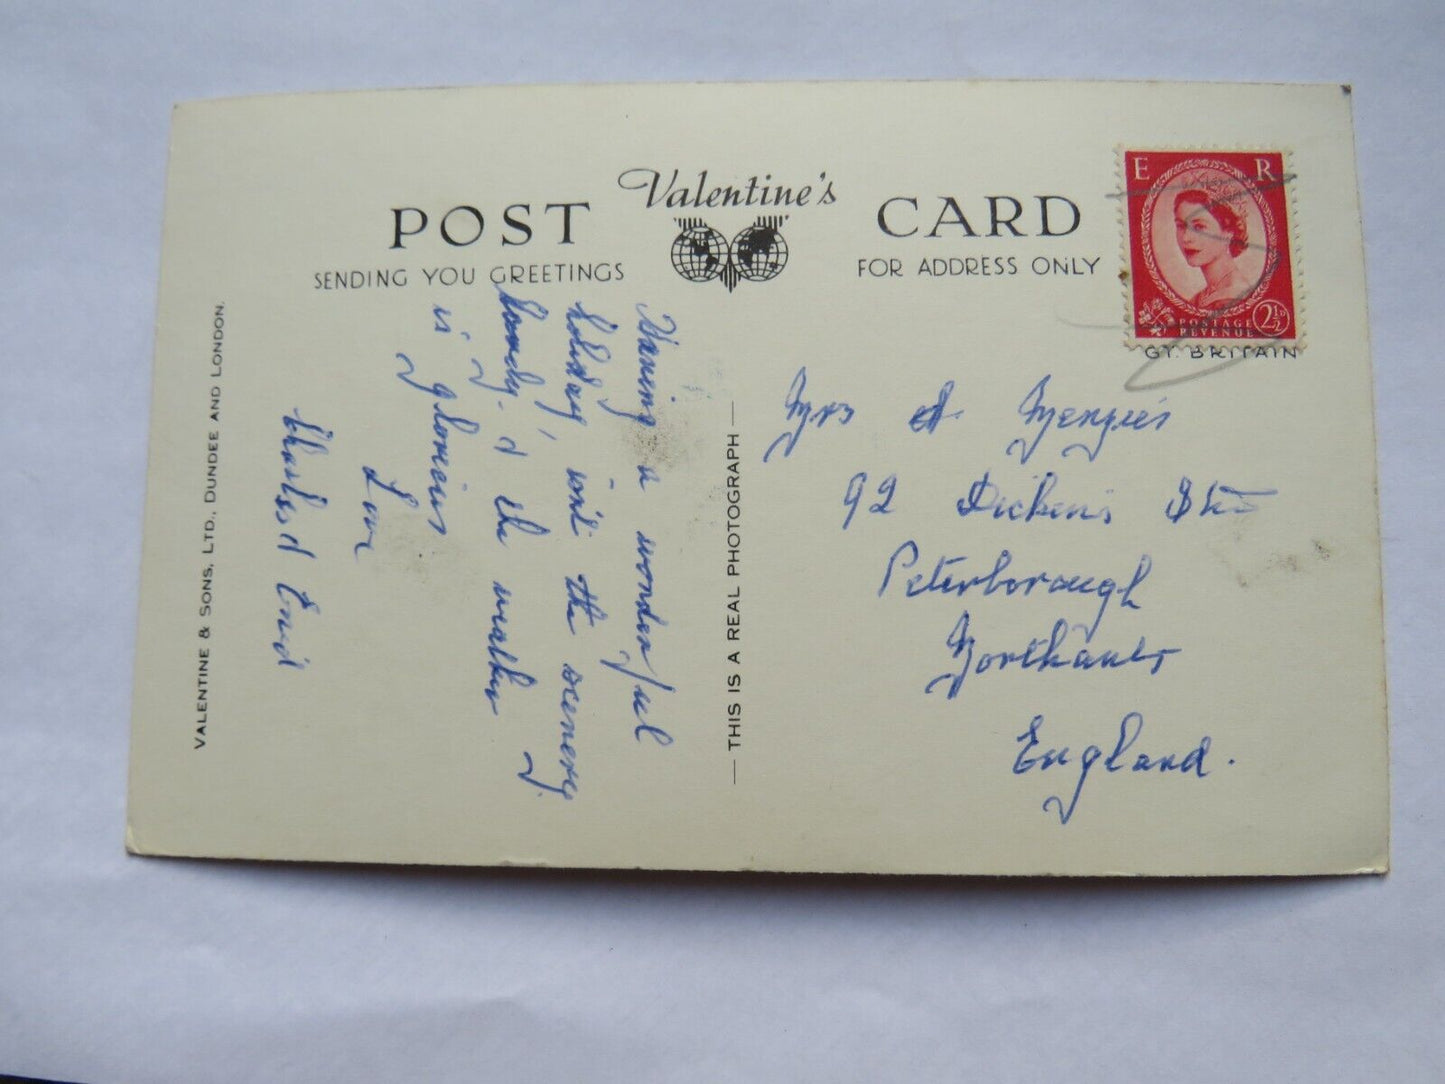 Valentine's
POST CARD
SENDING YOU GREETINGS
FOR ADDRESS ONLY
E R
POSTAGE
REVENUE
2½D
GT. BRITAIN
Having a wonderful
holiday, isn't the scenery
lovely, & the weather
is glorious
Love
Charles & Enid
THIS IS A REAL PHOTOGRAPH
Mrs A Menzies
92 Dickens St
Peterborough
Northants
England.
VALENTINE & SONS, LTD., DUNDEE AND LONDON.